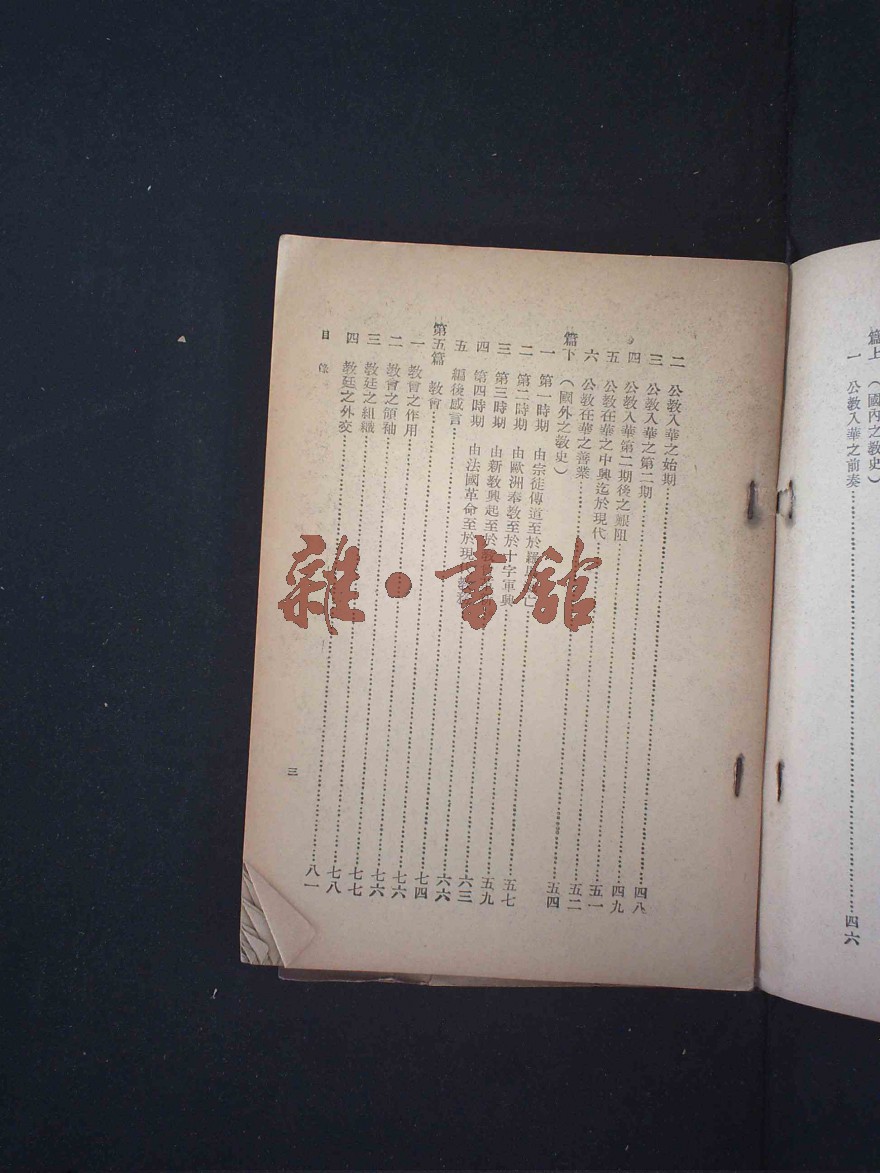 篇上 (國內之教史)
一 公教入華之前奏……四六
二 公教入華之始期……四八
三 公教入華之第二期……四九
四 公教入華第二期後之艱阻……五一
五 公教在華之中興迄於現代……五二
六 公教在華之善業……五四
篇下 (國外之教史)
一 第一時期 由宗徒傳道至於羅 亡……五七
二 第二時期 由歐洲奉教至於十字軍興……五九
三 第三時期 由新教興起至於……六三
四 第四時期 由法國革命至於現……六六
五 編後感言……七四
第五篇 教會……七六
一 教會之作用……七六
二 教會之領袖……七七
三 教廷之組織……七八
四 教廷之外交……八一
目 錄
三
雜·書館